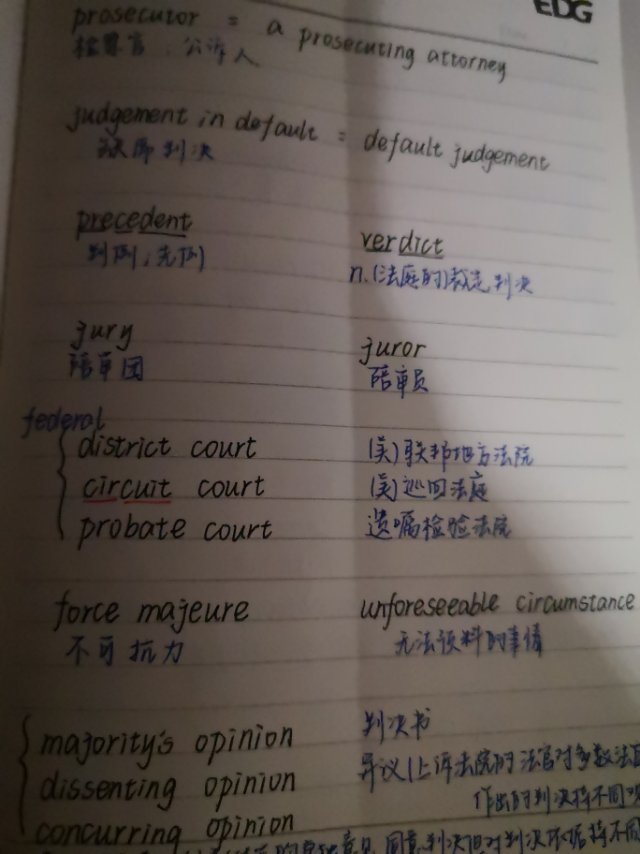 EDG
prosecutor = a prosecuting attorney
检察官；公诉人
judgement in default = default judgement
缺席判决
precedent
判例；先例
verdict
n.(法庭的)裁定判决
jury
陪审团
juror
陪审员
federal
district court (美)联邦地方法院
circuit court (美)巡回法庭
probate court 遗嘱检验法院
force majeure
不可抗力
unforeseeable circumstance
无法预料的事情
majority's opinion 判决书
dissenting opinion 异议(上诉法院的法官对多数法官
作出的判决持不同
concurring opinion
意见 同意判决但对判决依据持不同